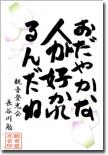 おだやかな
人が好かれ
るんだね
観音発光会
長谷川勉